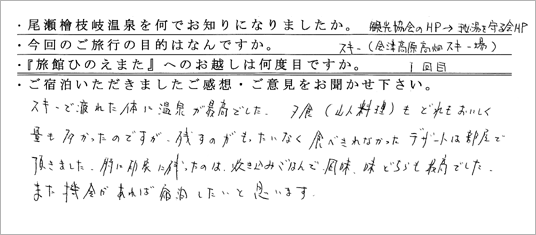 ・尾瀬檜枝岐温泉を何でお知りになりましたか。 観光協会のHP→秘湯を守る会HP
・今回のご旅行の目的はなんですか。 スキー(会津高原高畑スキー場)
・『旅館ひのえまた』へのお越しは何度目ですか。 1回目
・ご宿泊いただきましたご感想・ご意見をお聞かせ下さい。
スキーで疲れた体に温泉が最高でした。夕食(山人料理)もどれもおいしく
量も多かったのですが、残すのがもったいなく食べきれなかったデザートは部屋で
頂きました。特に印象に残ったのは、炊き込みごはんで風味、味どちらも最高でした。
また機会があれば宿泊したいと思います。